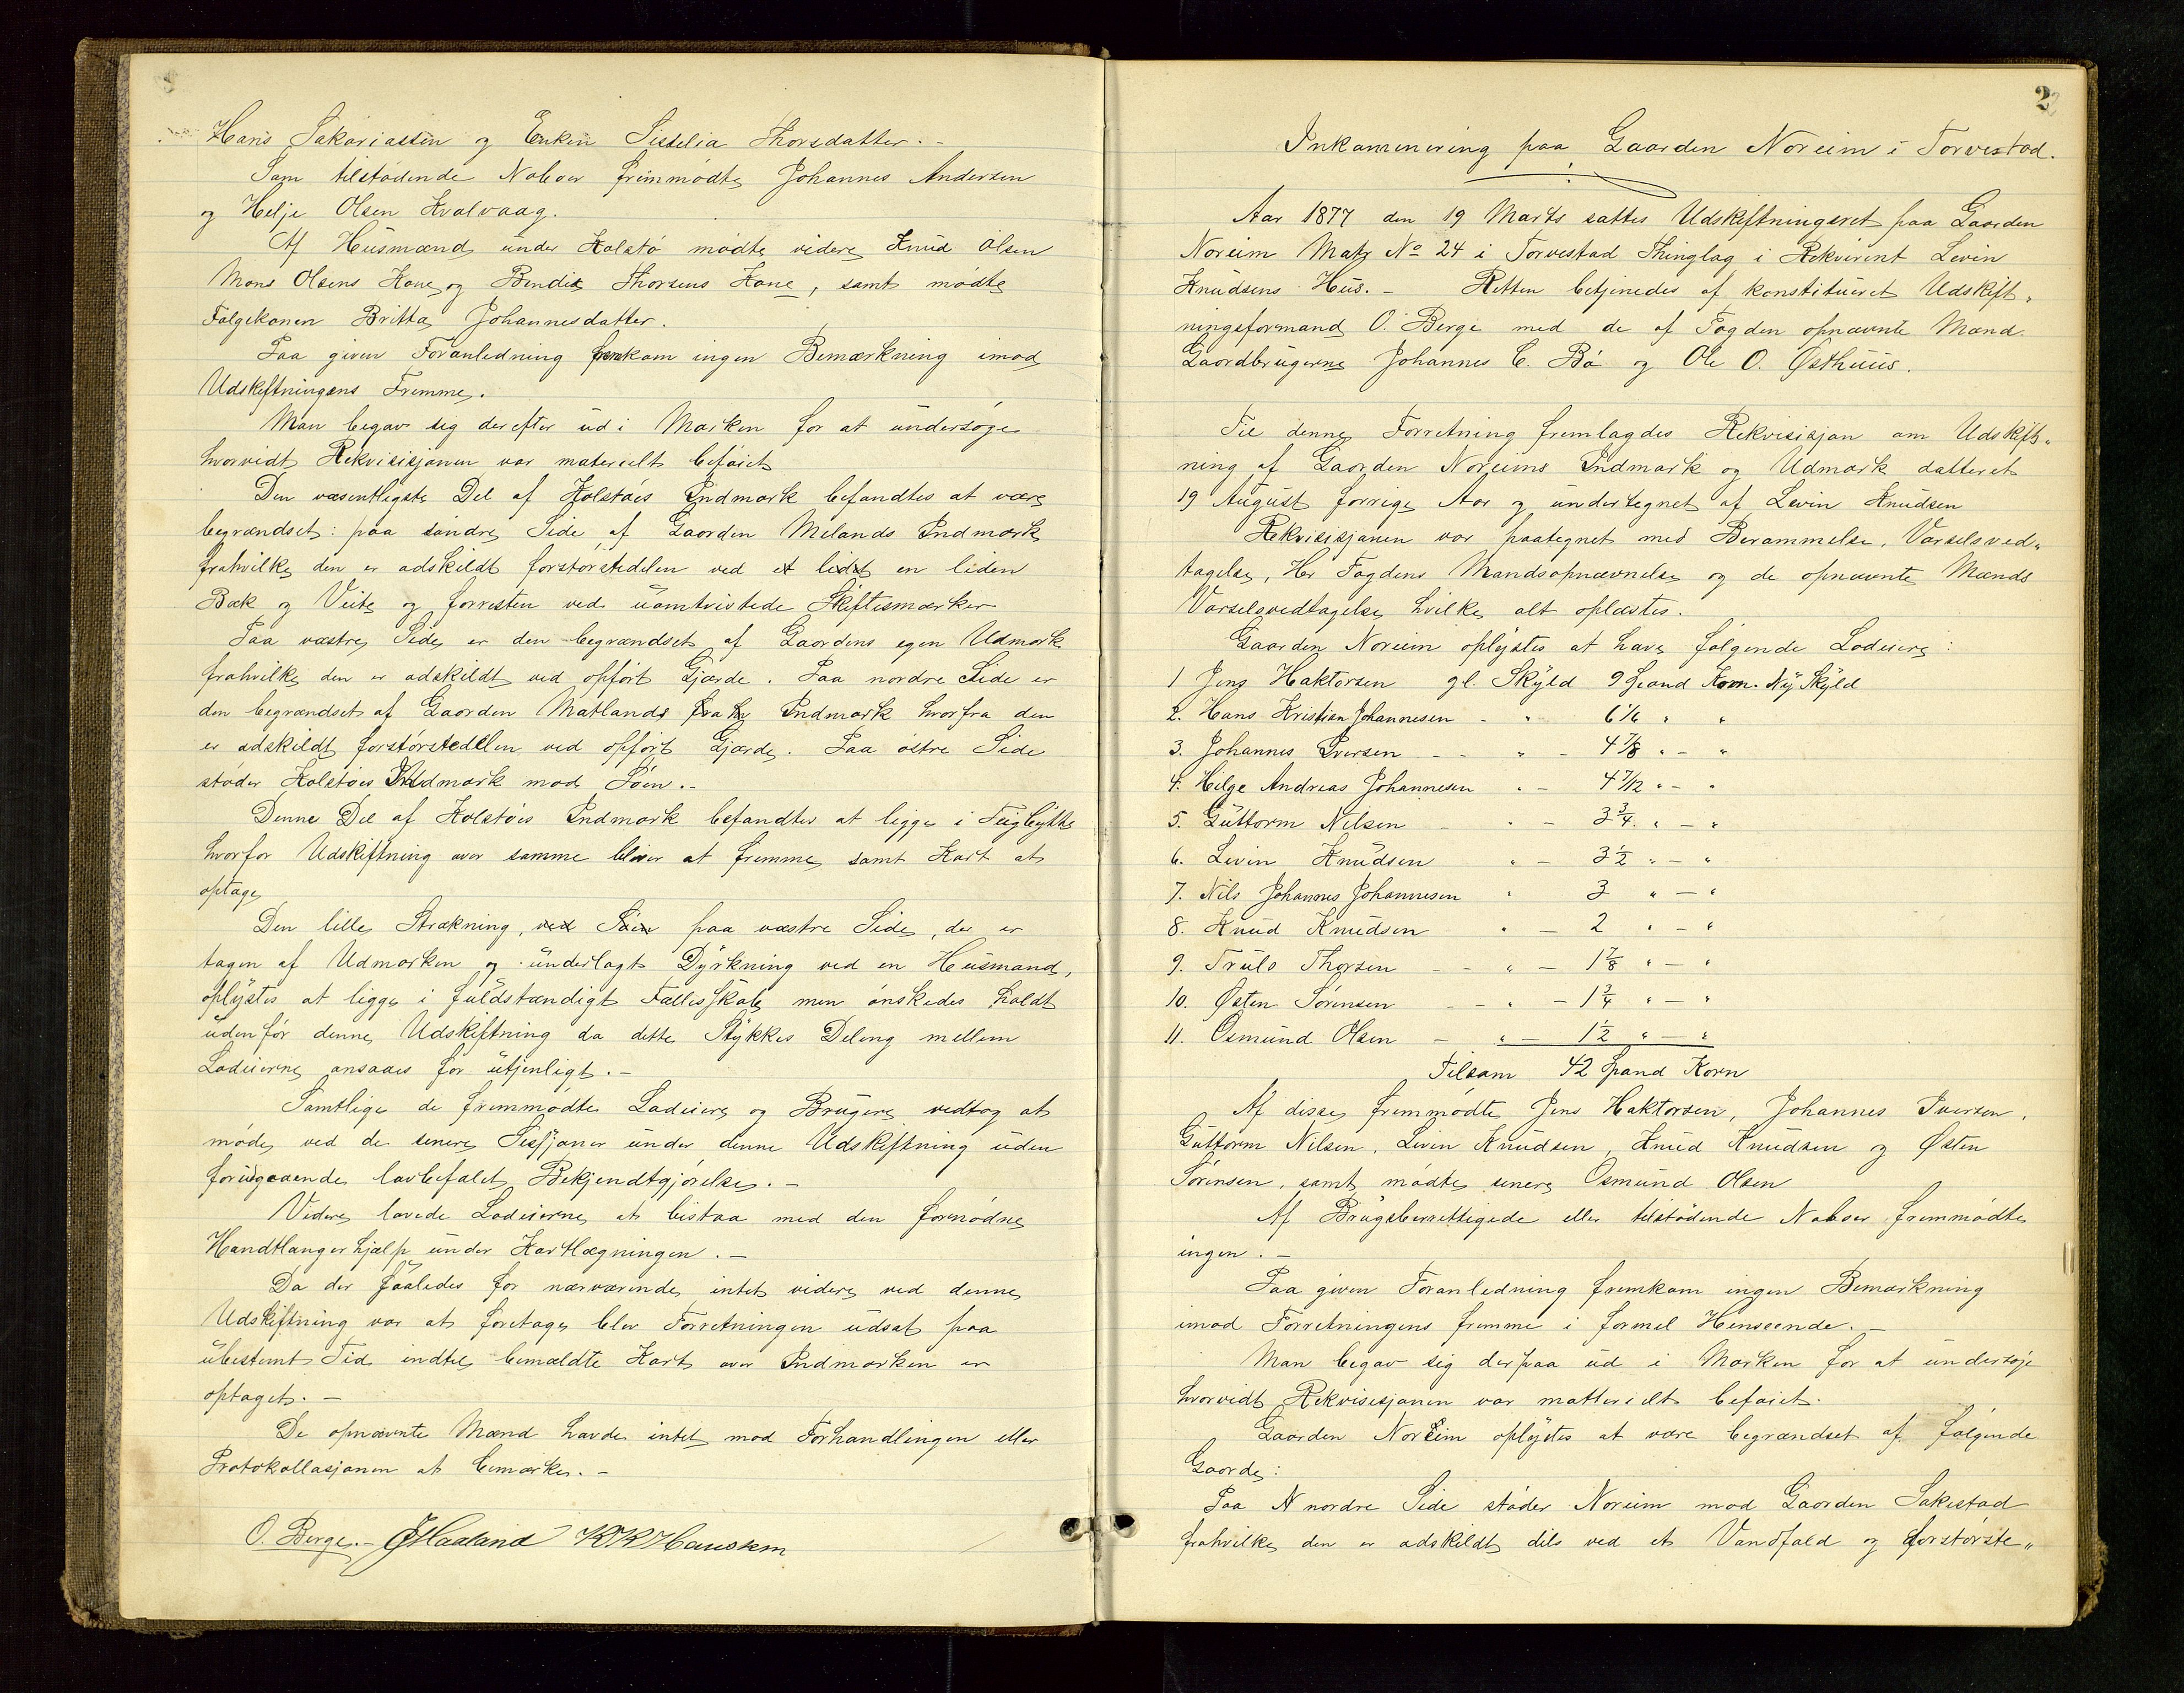 Hans Sakariassen og Enken Sisselia Thorsdatter.-
Som tilstødende Naboer fremmødte Johannes Andersen
og Helje Olsen Kvalvaag.
Af Husmænd under Kolstø mødte videre Knud Olsen
Mons Olsens Kone og Bendix Thorsens Kone, samt mødte
Følgekonen Britta Johannesdatter.
Paa given Foranledning fremkom ingen Bemærkning imod
Udskiftningens Fremme.
Man begav sig derefter ud i Marken for at undersøge
hvorvidt Rekvisisjonen var materielt beføiet
Den væsentligste Del af Kolstøes Indmark befandtes at være
begrændset: paa søndre Side af Gaarden Milands Indmark
frahvilke den er adskildt forstørstedelen ved et lidet en liden
Bæk og Veite og forresten ved uomtvistede Skiftesmærker
Paa væstre Side er den begrændset af Gaardens egen Udmark
frahvilke den er adskildt ved opført Gjærde. Paa nordre Side er
den begrændset af Gaarden Matlands Indmark hvorfra den
er adskildt forstørstedelen ved opført Gjærde. Paa østre Side
støder Kolstøes Indmark mod Søen.-
Denne Del af Kolstøes Indmark befandtes at ligge i Teigbytte
hvorfor Udskiftning over samme bliver at fremme samt Kart at
optage
Den lille Strækning, ved Søen paa væstre Side, der er
tagen af Udmarken og underlagt Dyrkning ved en Husmand,
oplystes at ligge i fuldstændigt Fællesskab men ønskedes holdt
udenfor denne Udskiftning da dette Stykkes Deling mellem
Lodeierne ansaaes for utjenligt.-
Samtlige de fremmødte Lodeiere og Brugere vedtog at
møde ved de senere Sessjoner under denne Udskiftning uden
forudgaaende lovbefalet Bekjendtgjørelse.-
Videre lovede Lodeierne at bistaa med den fornødne
Handtlangerhjælp under Kartlægningen.-
Da der saaledes for nærværende intet videre ved denne
Udskiftning var at foretage blev Forretningen udsat paa
ubestemt Tid indtil bemældte Kart over Indmarken er
optaget.-
De opnævnte Mænd havde intet mod Forhandlingen eller
Protokollasjonen at bemærke.-
O. Berge.- Haaland K K Hauskem
2
Inkaminering paa Gaarden Noreim i Torvestad.
Aar 1877 den 19 Marts sattes Udskiftningsret paa Gaarden
Noreim Matr No 24 i Torvestad Thinglag i Rekvirent Levin
Knudsens Hus.- Retten betjenedes af konstitueret Udskift„
ningsformand O. Berge med de af Fogden opnævnte Mænd
Gaardbrugerne Johannes C. Bø og Ole O. Østhuus.
Til denne Forretning fremlagdes Rekvisisjon om Udskift„
ning af Gaarden Noreims Indmark og Udmark datteret
19 August forrige Aar og undertegnet af Levin Knudsen
Rekvisisjonen var paategnet med Berammelse, Varselsved„
tagelse, Hr Fogdens Mandsopnævnelse og de opnævnte Mænds
Varselsvedtagelse hvilke alt oplæstes.
Gaarden Noreim oplystes at have følgende Lodeiere:
1 Jens Haktorsen gl. Skyld 9 Spand Korn. Ny Skyld
2. Hans Kristian Johannesen - " 6 1/6 " "
3. Johannes Iversen - - " - 4 7/8 " - "
4. Helge Andreas Johannesen " - 4 7/12 " - "
5. Guttorm Nilsen - " - 3 3/4 " - "
6. Levin Knudsen " - 3 1/2 " - "
7. Nils Johannes Johannesen " 3 " - "
8. Knud Knudsen " - 2 " - "
9. Truls Thorsen - - " - 1 7/8 " - "
10. Østen Sørensen - - " - 1 3/4 " - "
11. Osmund Olsen - " - 1 1/2 " - "
Tilsam 42 Spand Korn
Af disse fremmødte Jens Haktorsen, Johannes Iversen,
Guttorm Nilsen, Levin Knudsen, Knud Knudsen og Østen
Sørensen, samt mødte senere Osmund Olsen
Af Brugsberettigede eller tilstødende Naboer fremmødte
ingen.-
Paa given Foranledning fremkom ingen Bemærkning
imod Forretningens fremme i formel Henseende.-
Man begav sig derpaa ud i Marken for at undersøje
hvorvidt Rekvisisjonen var matterielt beføiet.
Gaarden Noreim oplystes at være begrændset af følgende
Gaarde:
Paa N nordre Side støder Noreim mod Gaarden Sakestad
frahvilke den er adskildt dels ved et Vandfald og forstørste„